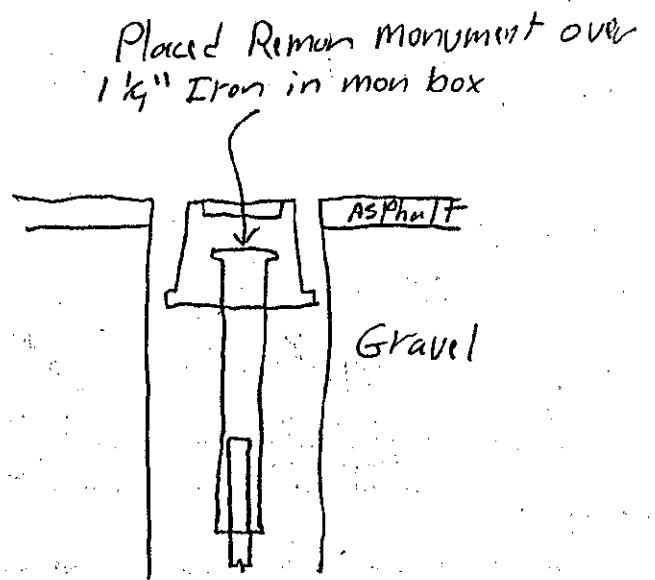 Placed Remon Monument over
1 1/4" Iron in mon box
ASPhalT
Gravel